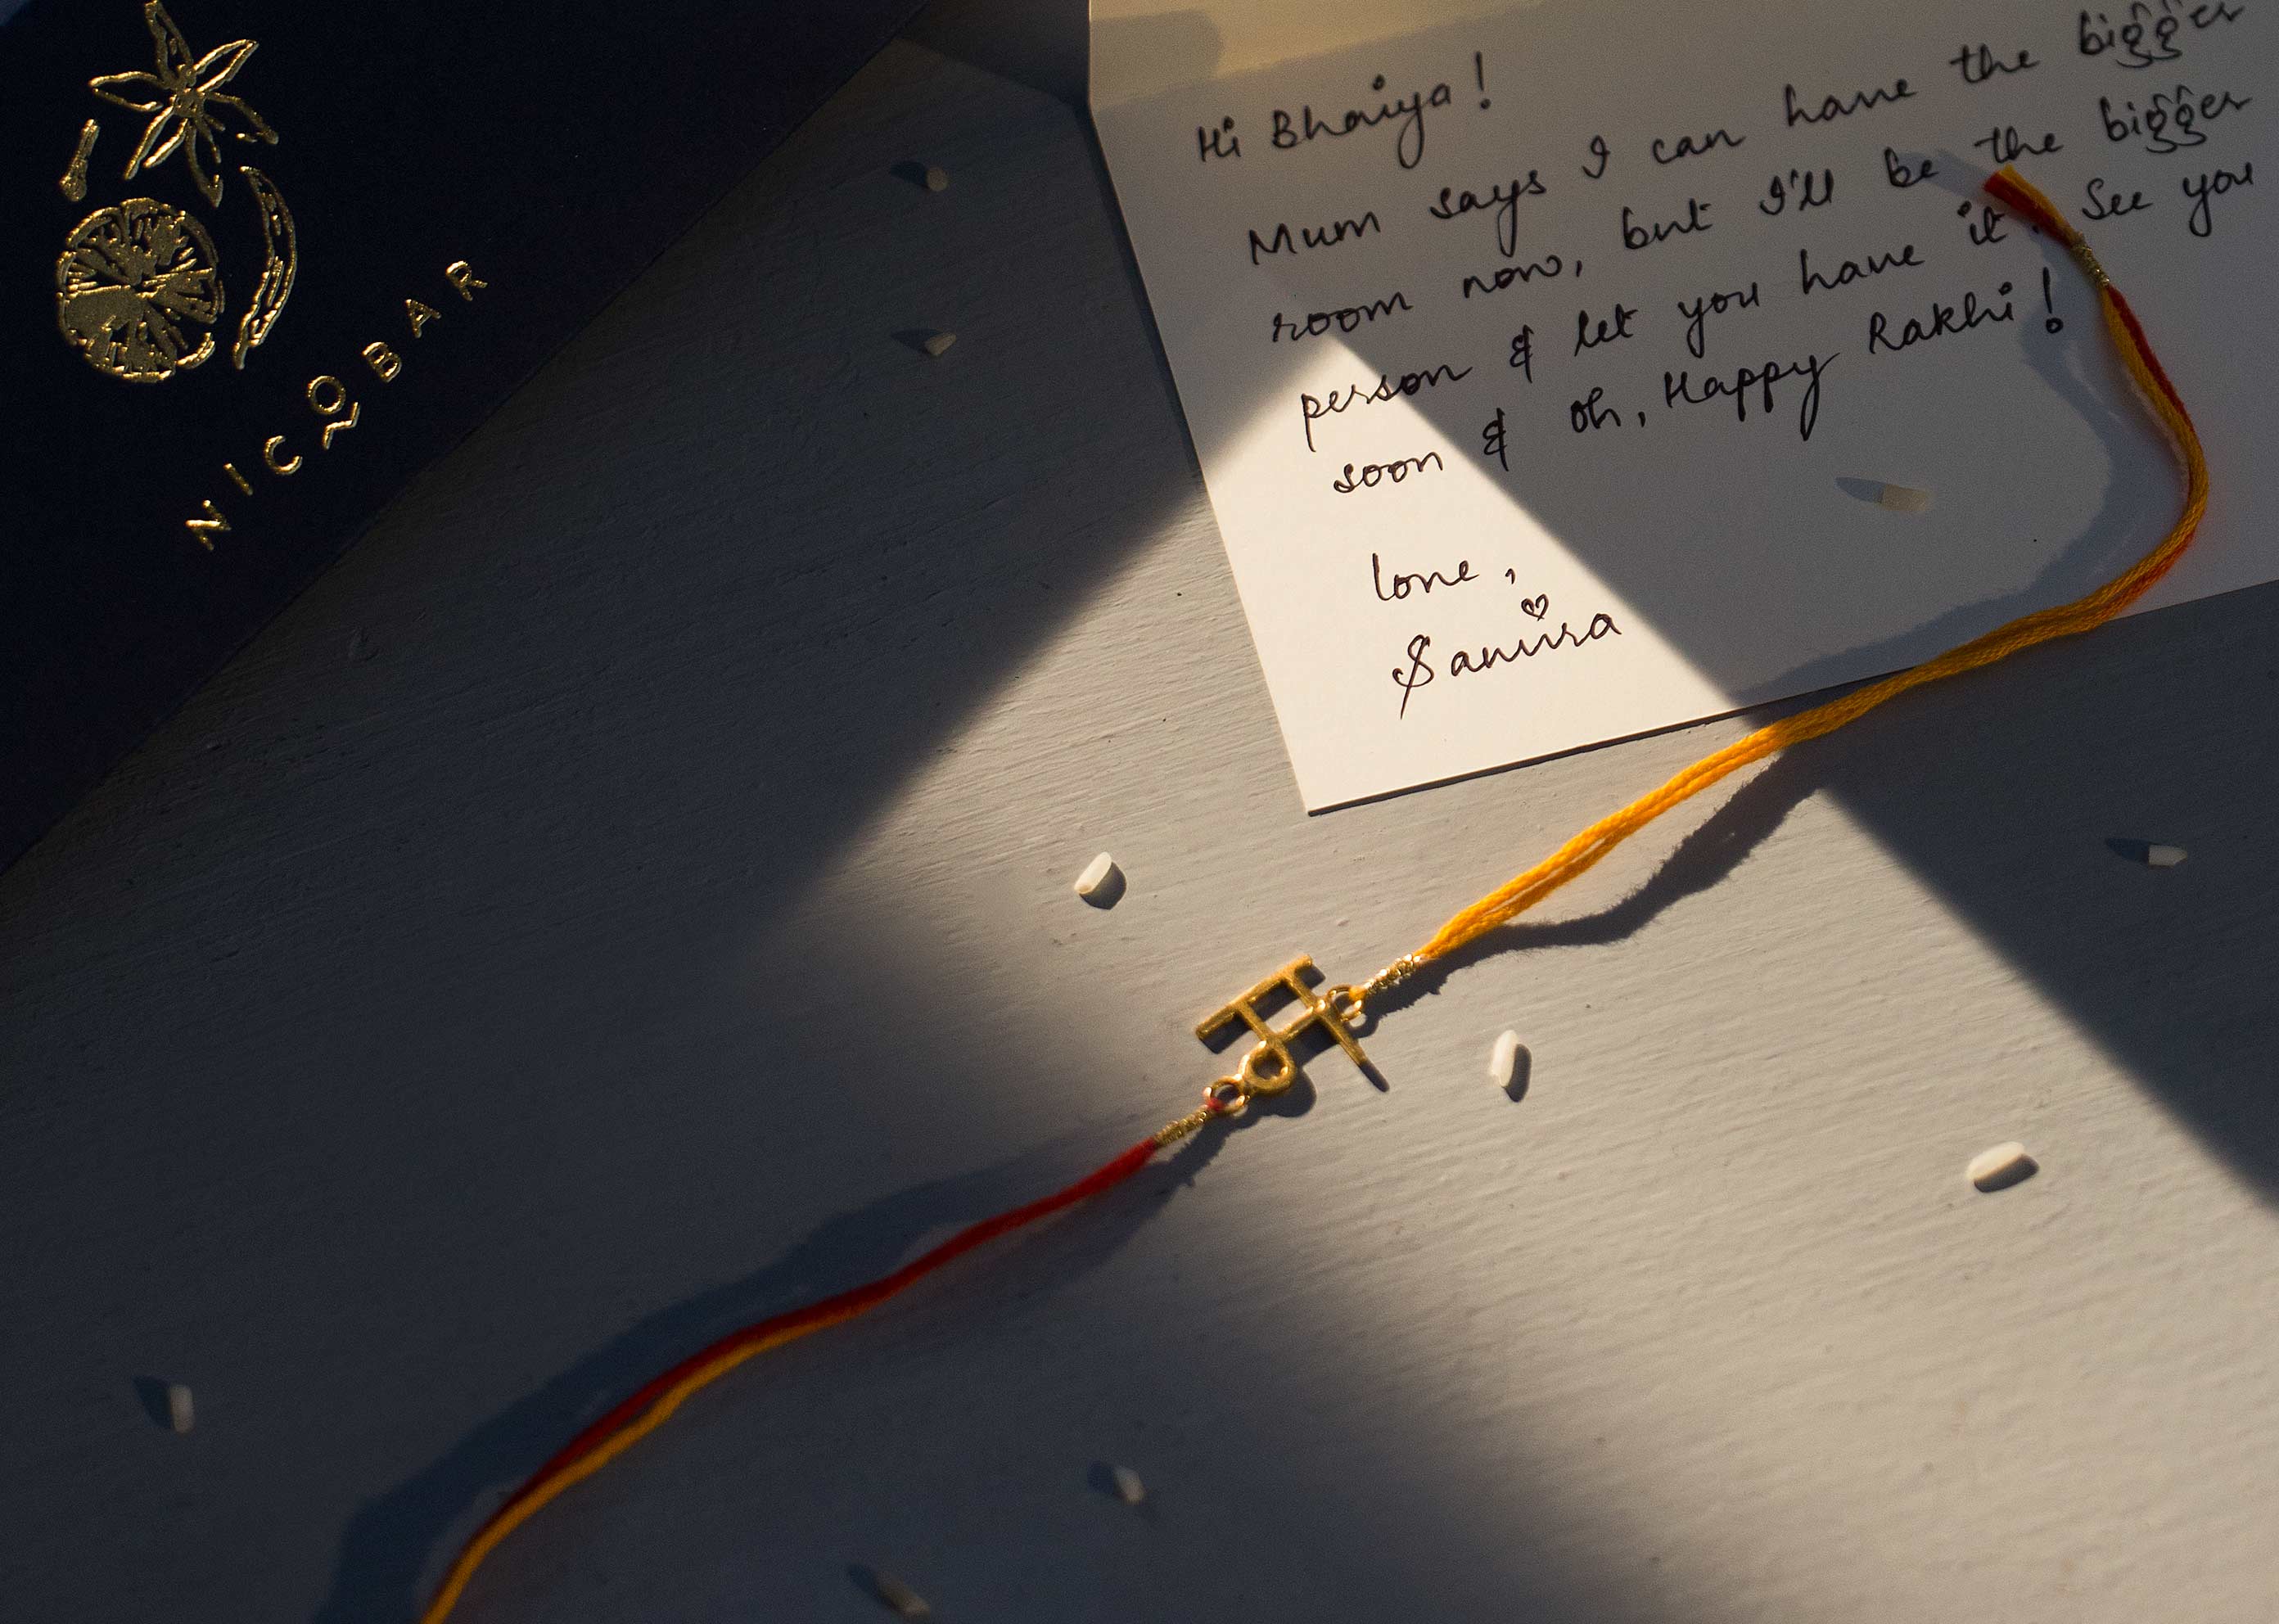 NICOBAR
Hi Bhaiya!
Mum says I can have the bigger
room now, but I'll be the bigger
person & let you have it. See you
soon & oh, Happy Rakhi!
love,
म